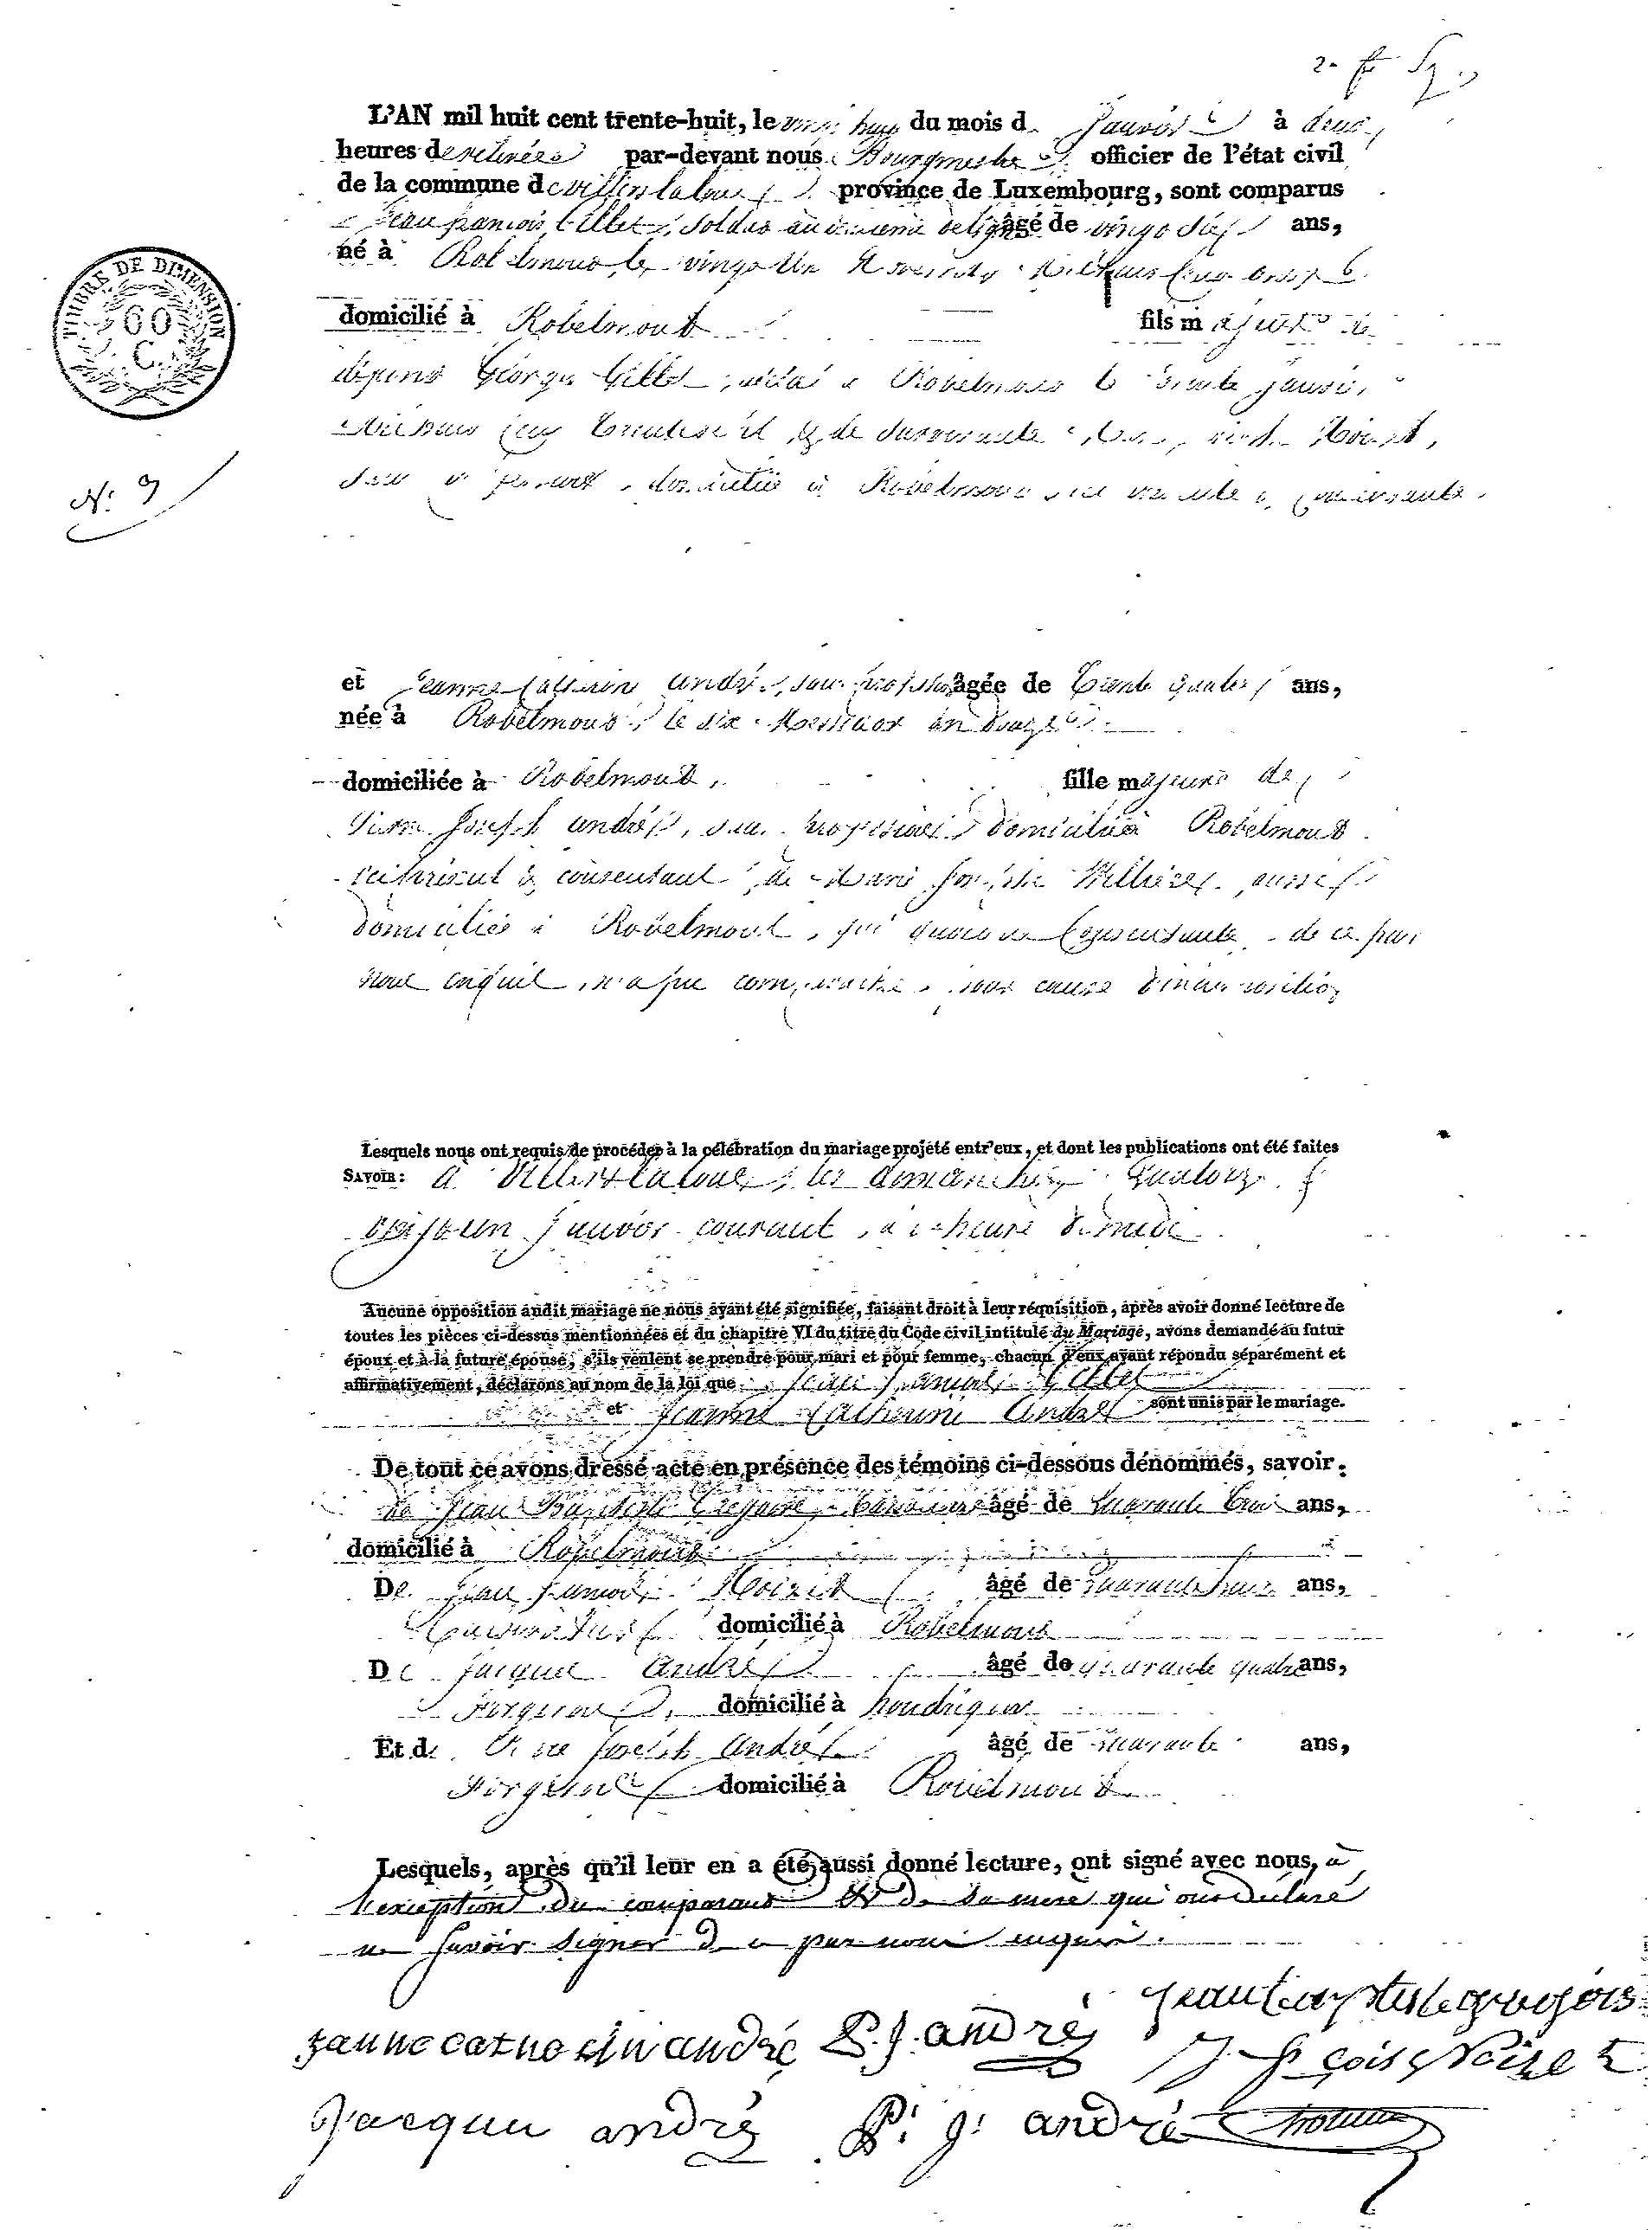 L'AN mil huit cent trente-huit, le vingt huit du mois de Janvier à deux
heures de relevée par-devant nous Bourgmestre officier de l'état civil
de la commune de villers la loue province de Luxembourg, sont comparus
Jean françois Gillet, soldat au de ligne âgé de vingt six ans,
né à Robelmont le vingt un mil huit cent onze
TIMBRE DE DIMENSION
60
C.
domicilié à Robelmont fils majeur de
défunt George Gillet, décédé à Robelmont le trente janvier
mil huit cent & de survivante Noiret,
sans, domiciliée à Robelmont, ici présente & consentante
N° 9
et Jeanne Catherine André, sans profession âgée de trente quatre ans,
née à Robelmont, le six Messidor an douze
domiciliée à Robelmont, fille majeure de
Pierre Joseph André, sans profession domicilié à Robelmont
ici présent & consentant & de Marie Josephe, aussi
domiciliée à Robelmont, qui quoique consentante, de ce par
nous enquis, n'a pu comparaitre, pour cause d'indisposition
Lesquels nous ont requis de procéder à la célébration du mariage projeté entr'eux, et dont les publications ont été faites
SAVOIR: à Villers la loue, les dimanches quatorze &
vingt un janvier courant, à l'heure de midi
Aucune opposition audit mariage ne nous ayant été signifiée, faisant droit à leur réquisition, après avoir donné lecture de
toutes les pièces ci-dessus mentionnées et du chapitre VI du titre du Code civil intitulé du Mariage, avons demandé au futur
époux et à la future épouse, s'ils veulent se prendre pour mari et pour femme, chacun d'eux ayant répondu séparément et
affirmativement, déclarons au nom de la loi que Jean françois Gillet
et Jeanne Catherine André sont unis par le mariage.
De tout ce avons dressé acte en présence des témoins ci-dessous dénommés, savoir:
De Jean Baptiste Gregoire, âgé de quarante trois ans,
domicilié à Robelmont
De Jean françois Noiret âgé de quarante huit ans,
domicilié à Robelmont
De Jacque André âgé de quarante quatre ans,
forgeron, domicilié à houdrigny
Et de Pierre Joseph André âgé de quarante ans,
forgeron domicilié à Robelmont
Lesquels, après qu'il leur en a été aussi donné lecture, ont signé avec nous, à
l'exception du comparant & de sa mere qui ont déclaré
ne savoir signer de ce par nous enquis.
jean baptiste gregoire
janne catherin andré P. J. andré
J. fçois Noiret
Jacque andré P: j: andré